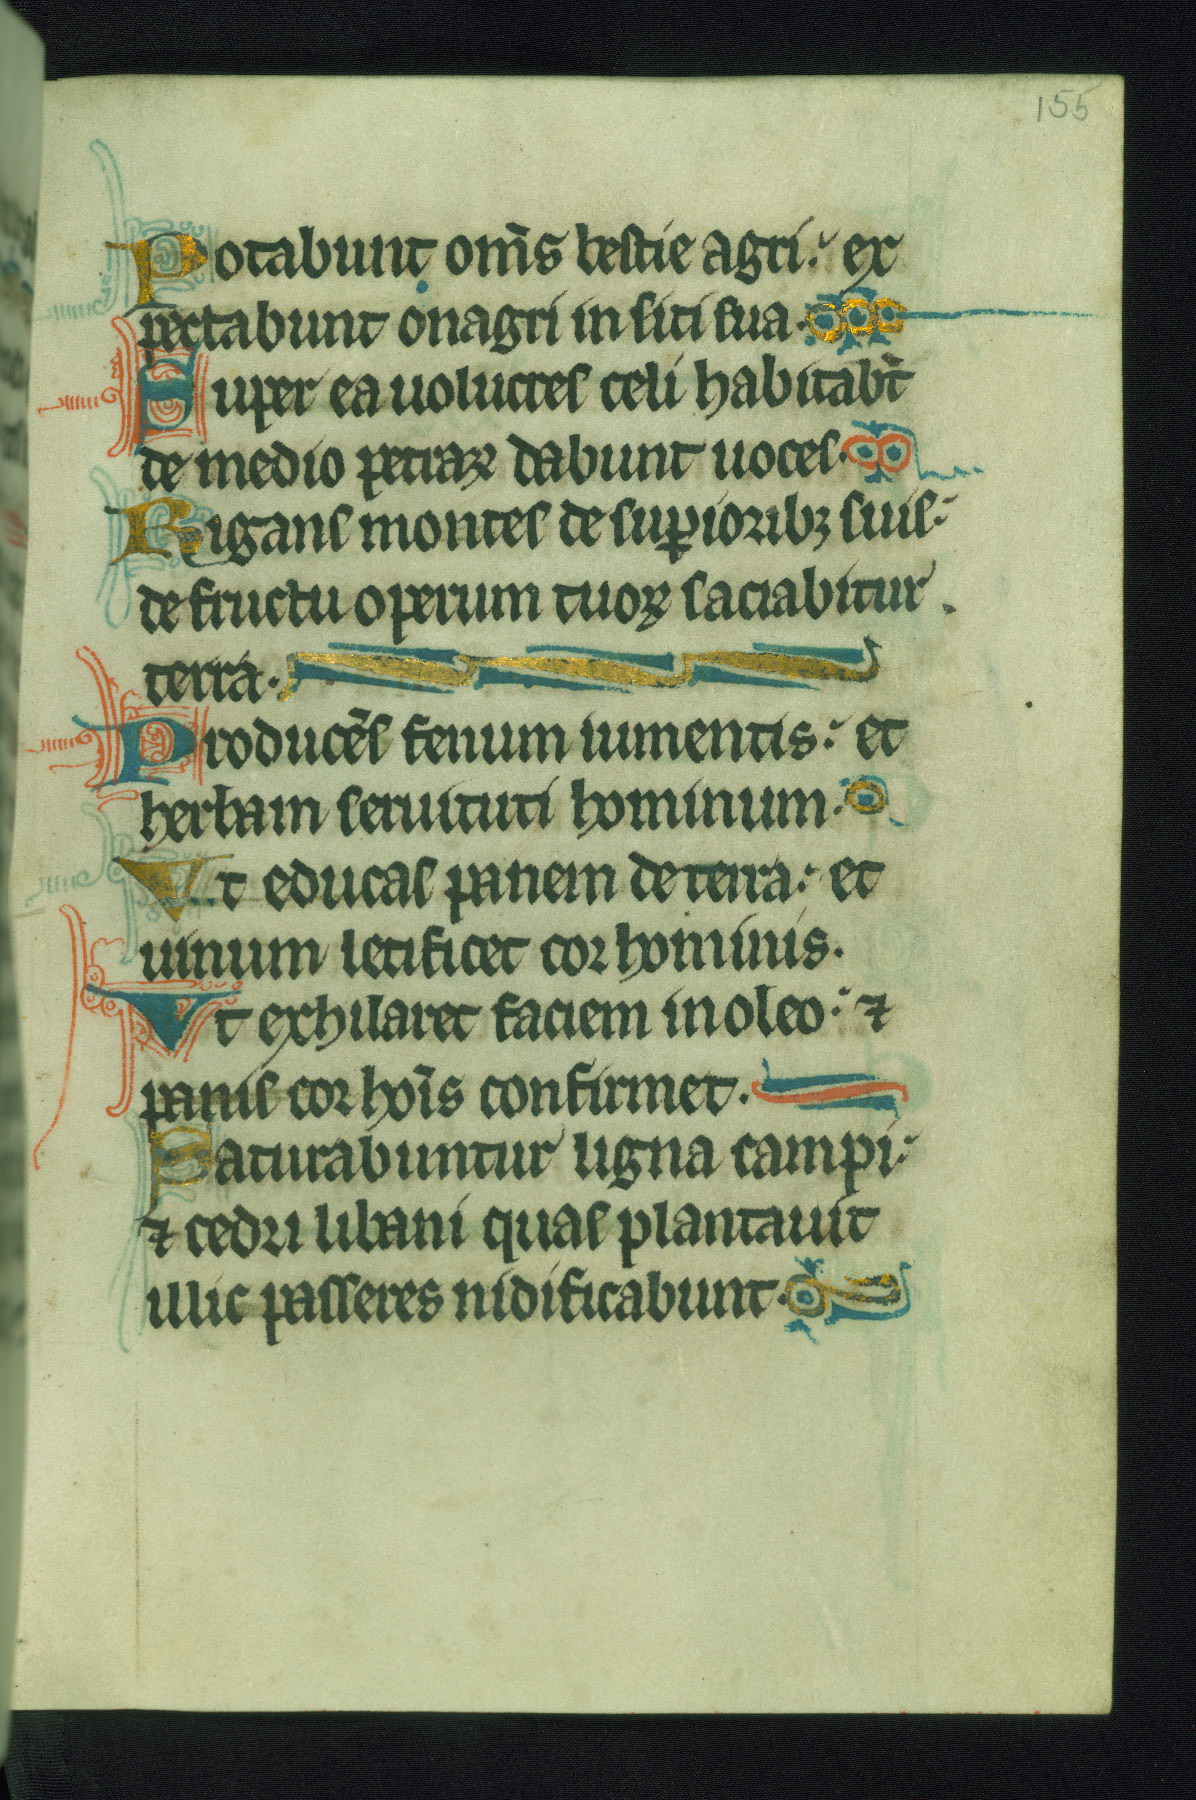 155
Potabunt om̅s bestie agri: ex
pectabunt onagri in siti sua.
Super ea uolucres celi habitab̅t
de medio petraꝝ dabunt uoces.
Rigans montes de suꝑioribꝫ suis:
de fructu operum tuoꝝ saciabitur
terra.
Producēs fenum iumentis: et
herbam seruituti hominum.
Vt educas panem de terra: et
uinum letificet cor hominis.
Vt exhilaret faciem in oleo: ⁊
panis cor hoīs confirmet.
Saturabuntur ligna campi:
⁊ cedri libani quas plantauit
illic passeres nidificabunt.